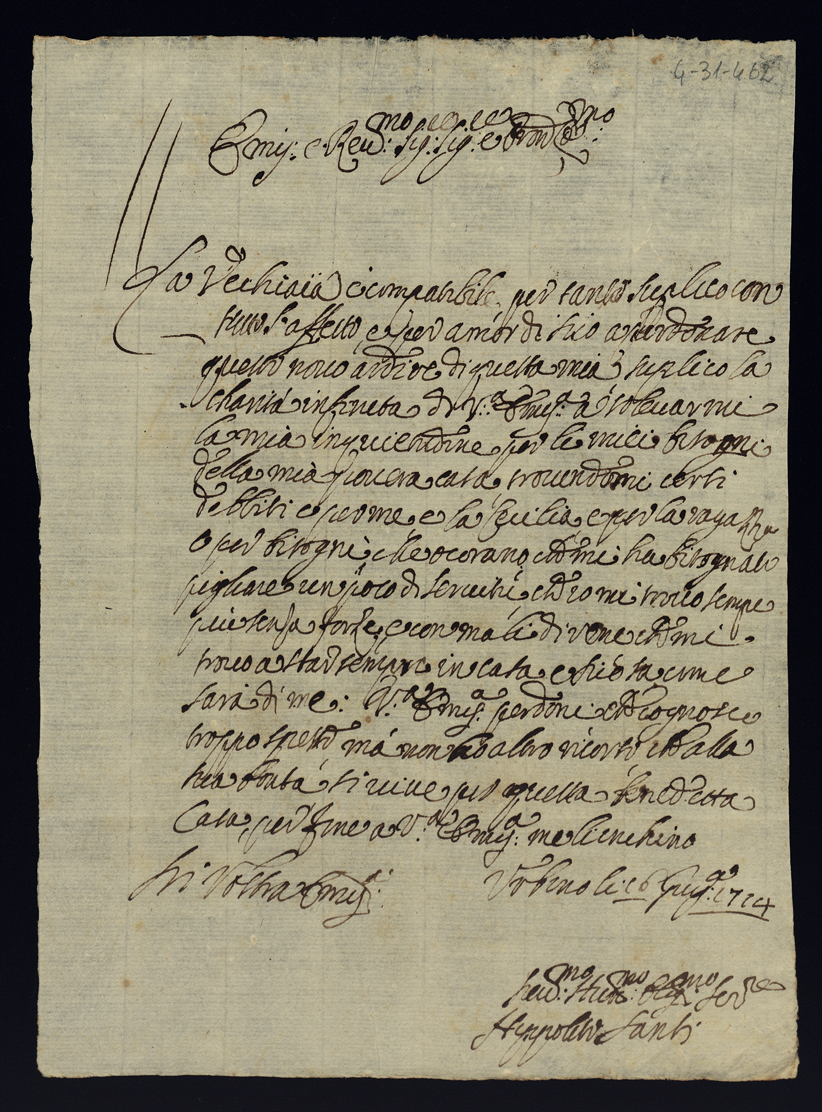 4-31-462
Emis: e Reud:mo Sig: Sig: e Pron Col:mo
La Vechiaia e compatibile, per tanto suplico con
tutto l'affetto e per amor di Dio a perdonare
questo novo ardire di questa mia, suplico la
Charitá infineta di V:a Emis:a á solevarmi
la mia inquietudine per li miei bisogni
della mia povera casa, trovendomi certi
debbiti e per me e la Cicilia e per la ragazza
o per bisogni che ocorano, ch mi ha bisognato
pigliare un poco di ch io mi trovo sempre
piu senza forze, e con mali di vene ch mi
trovo a star sempre in casa e Dio sa come
sara di me: V:a Emis:a perdoni ch cognosce
troppo spesso má non ho altro ricorso ch alla
sua bontá si vive per quella benedetta
Casa, per fine a V:a Emis:a me linchino
Di Vostra Emis:a
Urbino li 16 1714
Deu:mo Hu:mo Oblig:mo Ser:re
Hyppolito Santi